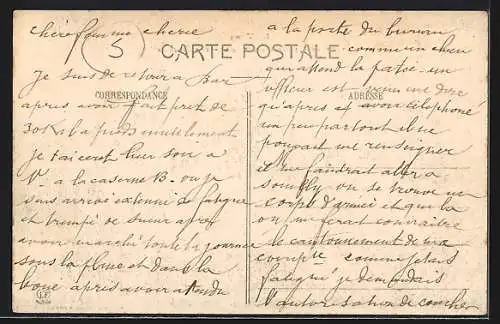 chère femme cherie
S
CARTE POSTALE
CORRESPONDANCE
ADRESSE
je suis de retour a Bar
apres avoir fait pret de
30 K la a pieds inutilement
je t'ai ecrit hier soir a
V. a la caserne B. ou je
suis arrivé extenué de fatigue
et trempé de sueur apres
avoir marché toute la journée
sous la pluie et dans la
boue apres avoir attendu
a la porte du bureau
comme un chien
qui attend la patée un
officier est venu me dire
qu'apres avoir téléphoné
un peu partout il ne
pouvait me renseigner
il me faudrait aller a
Souilly ou se trouve un
corps d'armée et que la
on me ferait connaitre
le cantonnement de ma
comme j'etais
fatigué je demandais
l'autorisation de coucher